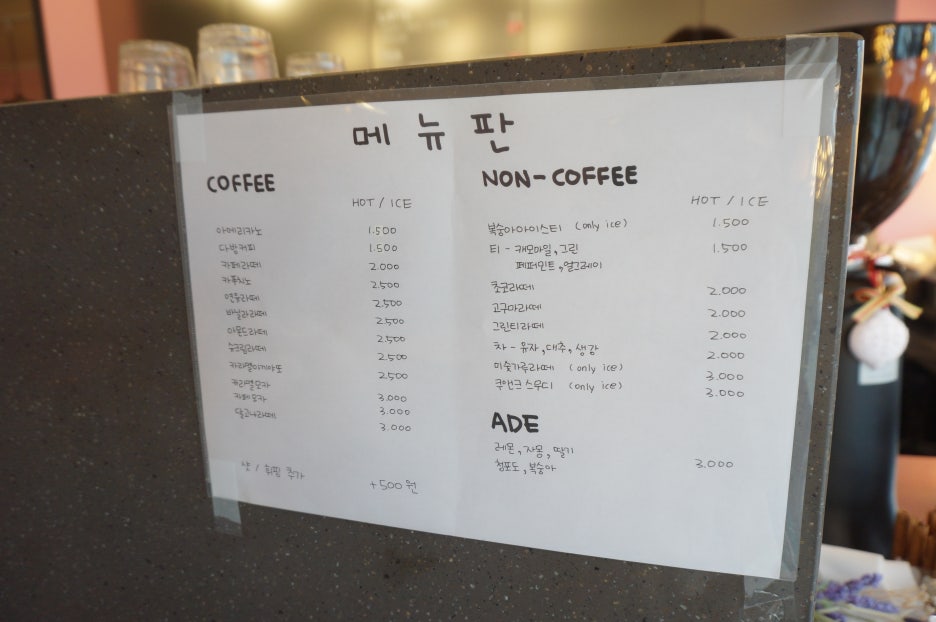 메뉴판
COFFEE
HOT / ICE
아메리카노 1.500
다방커피 1.500
카페라떼 2.000
카푸치노 2.500
연유라떼 2.500
바닐라라떼 2.500
아몬드라떼 2.500
슈크림라떼 2.500
카라멜마끼아또 2.500
카라멜모카 3.000
카페모카 3.000
달고나라떼 3.000
샷 / 휘핑 추가 +500원
NON-COFFEE
HOT / ICE
복숭아아이스티 (only ice) 1.500
티 - 캐모마일, 그린 1.500
페퍼민트, 얼그레이
초코라떼 2.000
고구마라떼 2.000
그린티라떼 2.000
차 - 유자, 대추, 생강 2.000
미숫가루라떼 (only ice) 3.000
쿠앤크 스무디 (only ice) 3.000
ADE
레몬, 자몽, 딸기
청포도, 복숭아 3.000